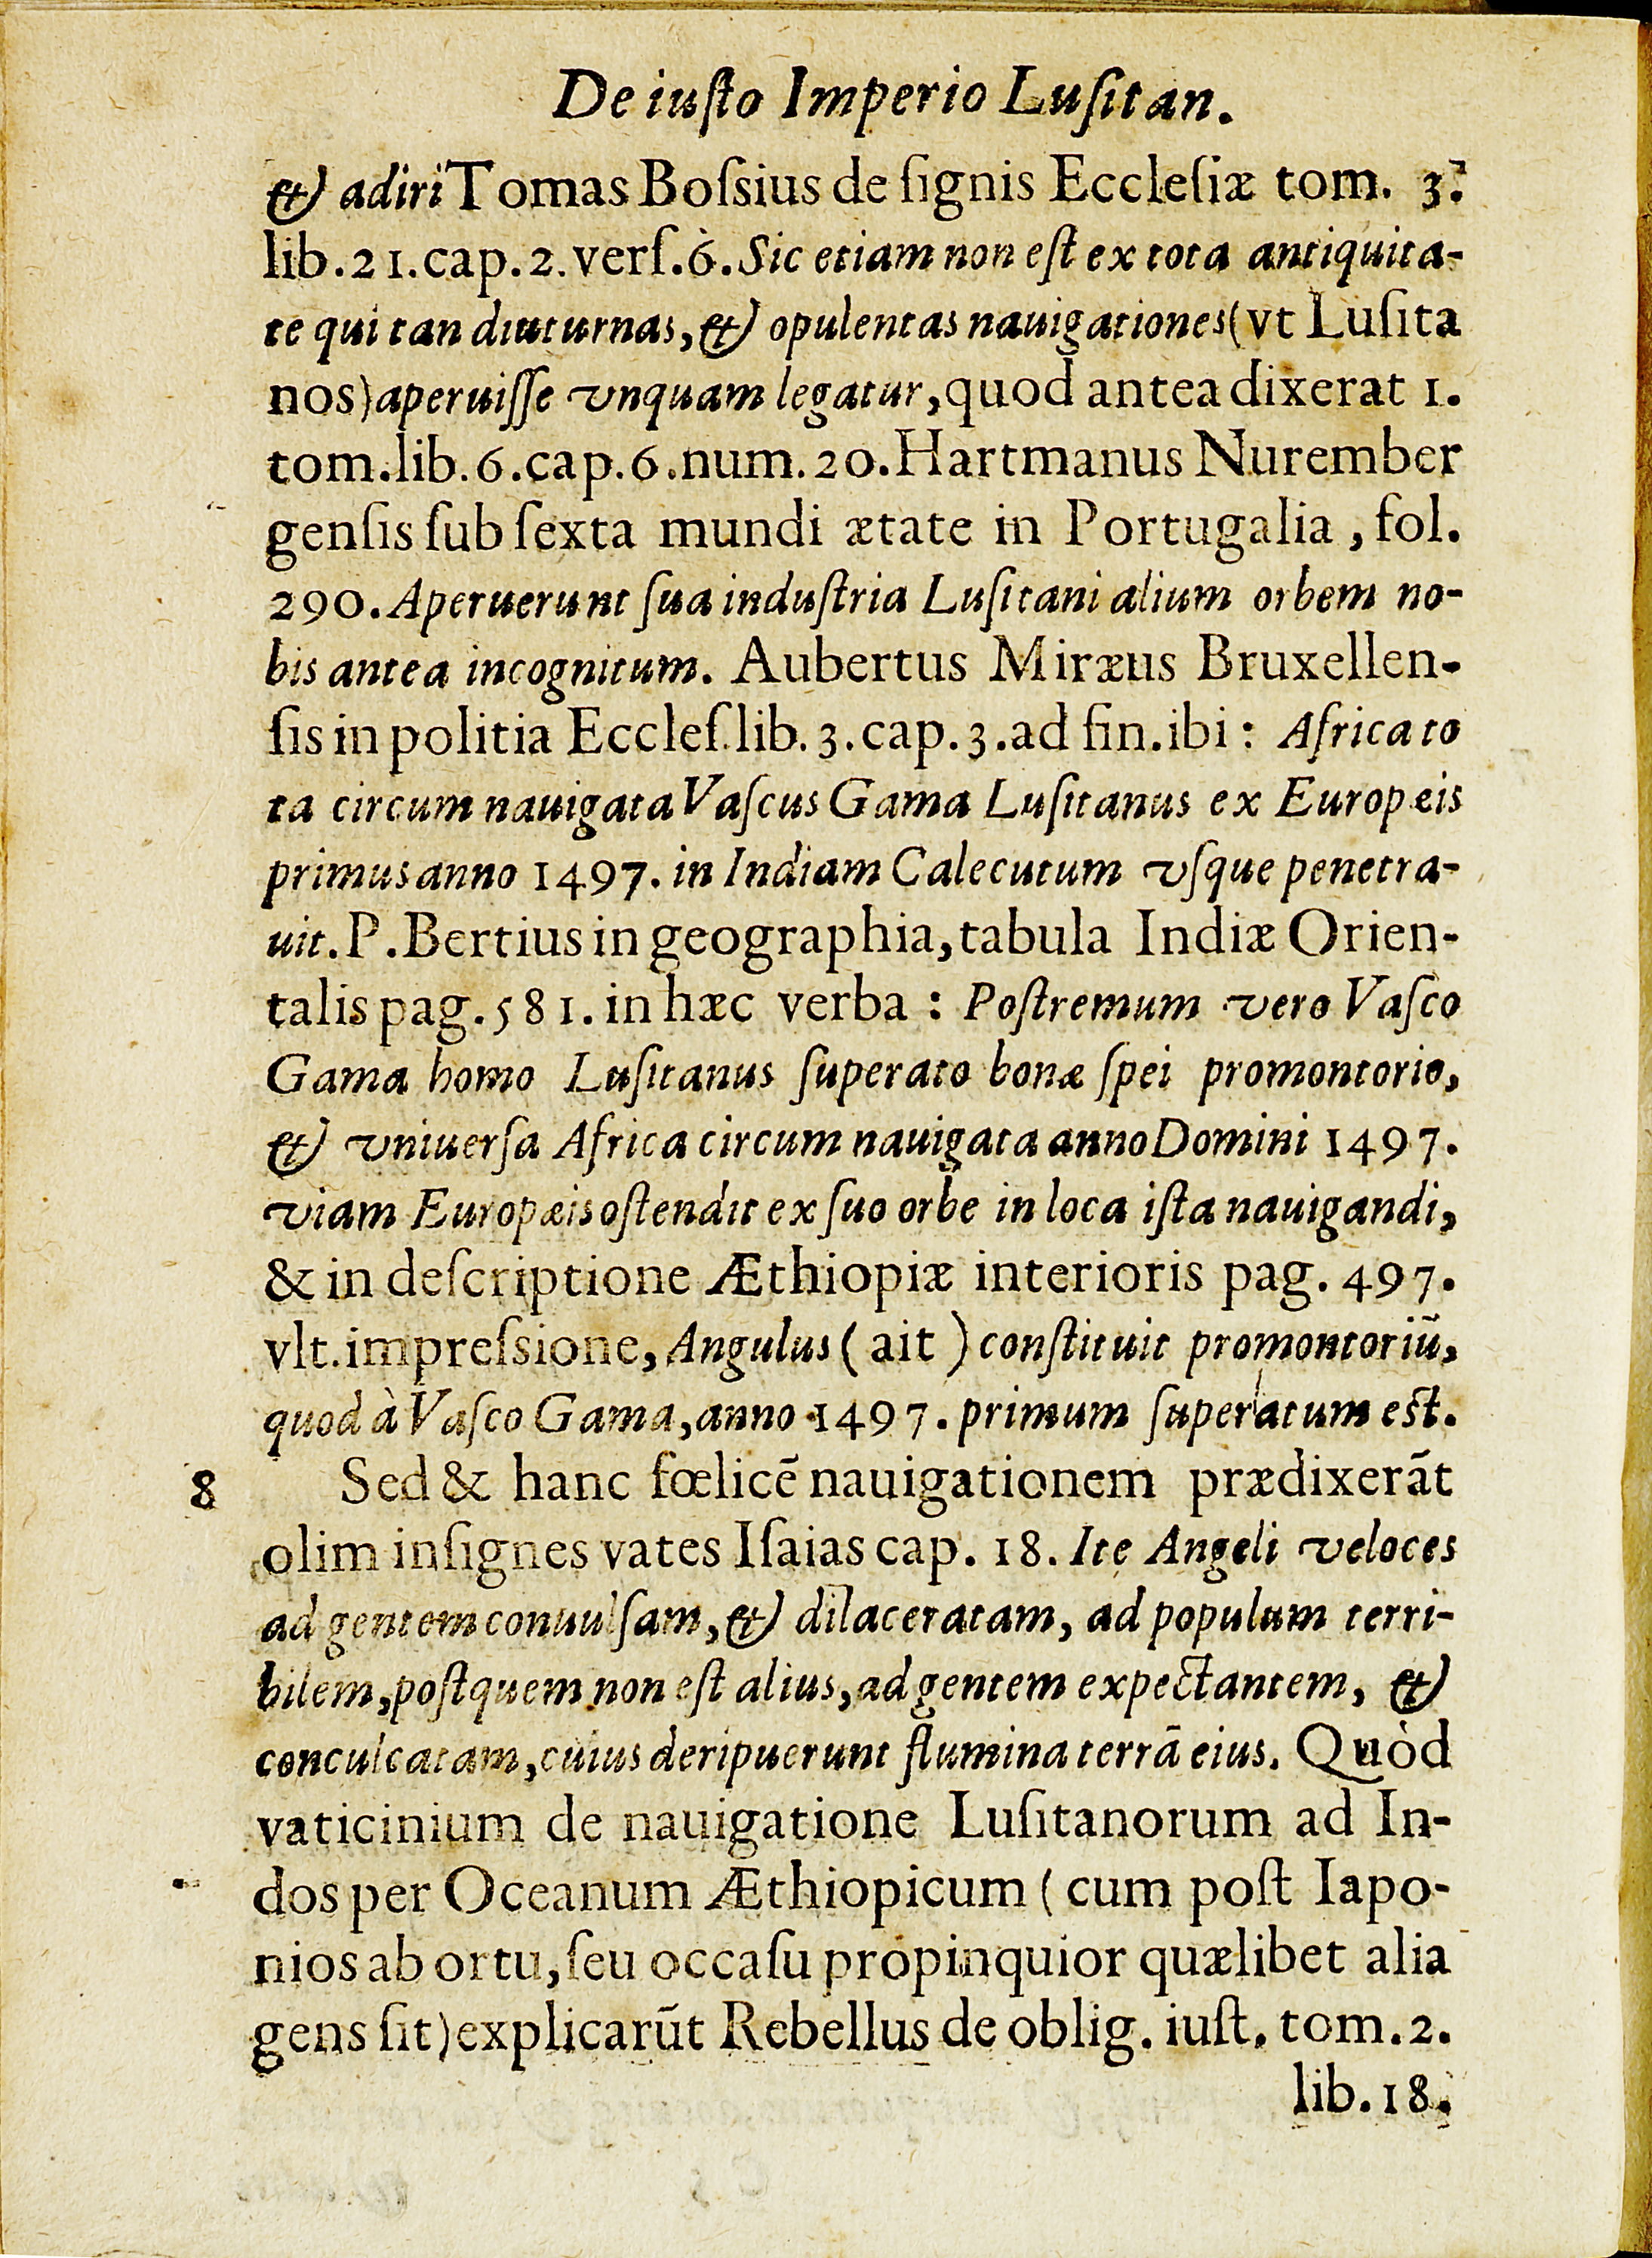 De iuſto Imperio Luſitan.
& adiri Tomas Boſsius de ſignis Eccleſiæ tom. 3.
lib. 21. cap. 2. verſ. ò. Sic etiam non eſt ex tota antiquita-
te qui tan diuturnas, & opulentas nauigationes (vt Luſita
nos) aperuiſſe vnquam legatur, quod antea dixerat 1.
tom. lib. 6. cap. 6. num. 20. Hartmanus Nurember
genſis ſub ſexta mundi ætate in Portugalia, fol.
290. Aperuerunt ſua induſtria Luſitani alium orbem no-
bis antea incognitum. Aubertus Miræus Bruxellen-
ſis in politia Eccleſ. lib. 3. cap. 3. ad fin. ibi: Africa to
ta circum nauigata Vaſcus Gama Luſitanus ex Europeis
primus anno 1497. in Indiam Calecutum vſque penetra-
uit. P. Bertius in geographia, tabula Indiæ Orien-
talis pag. 581. in hæc verba: Poſtremum vero Vaſco
Gama homo Luſitanus ſuperato bonæ ſpei promontorio,
& vniuerſa Africa circum nauigata anno Domini 1497.
viam Europæis oſtendit ex ſuo orbe in loca iſta nauigandi,
& in deſcriptione Æthiopiæ interioris pag. 497.
vlt. impreſsione, Angulus (ait) conſtituit promontoriũ,
quod à Vaſco Gama, anno 1497. primum ſuperatum eſt.
8 Sed & hanc fœlicẽ nauigationem prædixerãt
olim inſignes vates Iſaias cap. 18. Ite Angeli veloces
ad gentem conuulſam, & dilaceratam, ad populum terri-
bilem, poſt quem non eſt alius, ad gentem expectantem, &
conculcatam, cuius deripuerunt flumina terrã eius. Quòd
vaticinium de nauigatione Luſitanorum ad In-
dos per Oceanum Æthiopicum (cum poſt Iapo-
nios ab ortu, ſeu occaſu propinquior quælibet alia
gens ſit) explicarũt Rebellus de oblig. iuſt. tom. 2.
lib. 18.